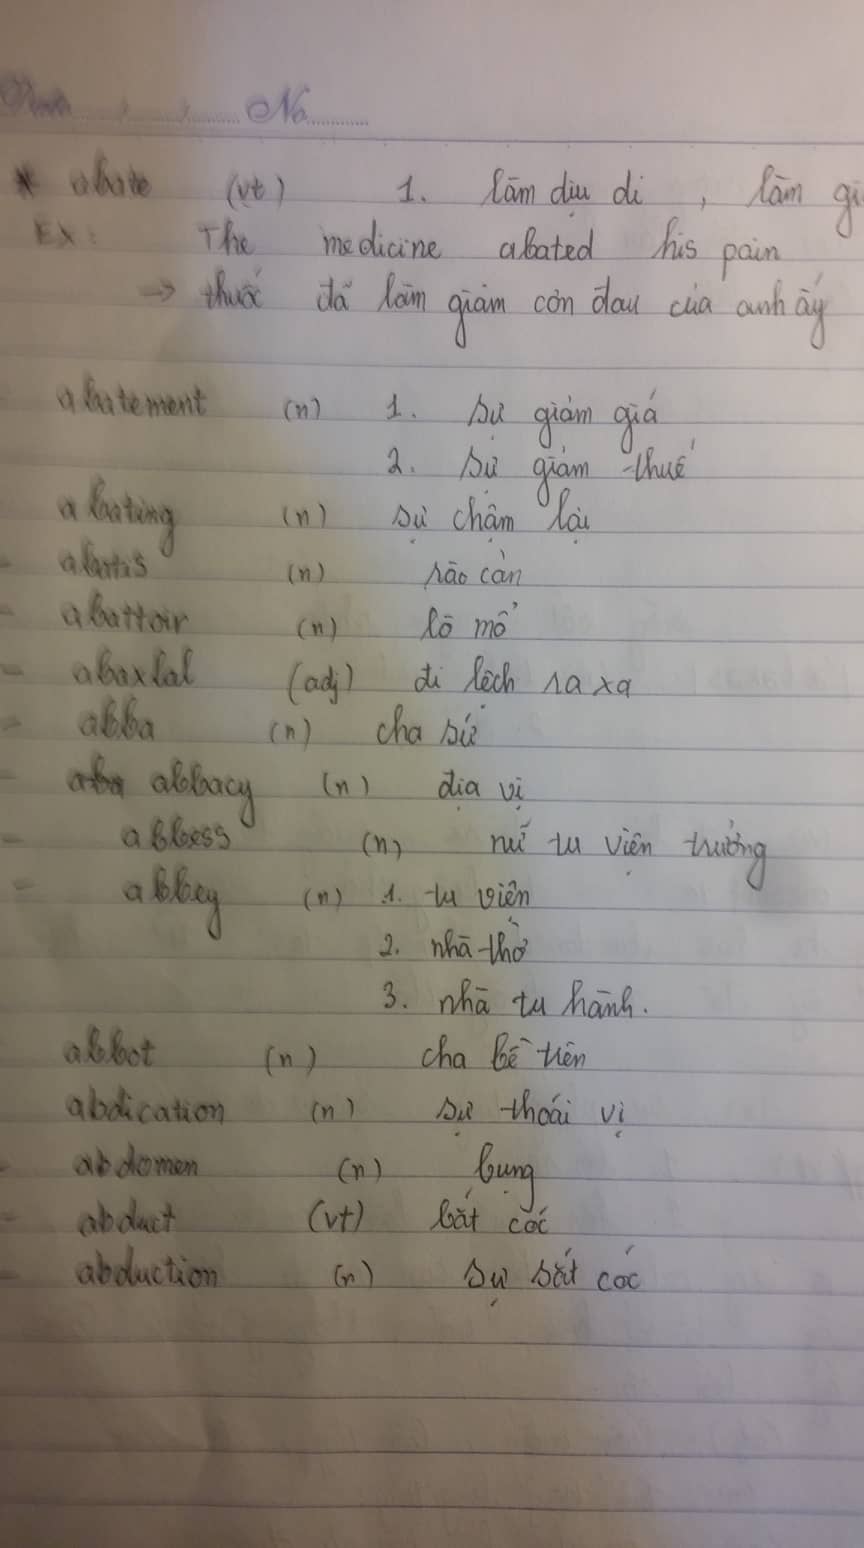 No.
* abate (vt) 1. làm dịu đi, làm gi
EX: The medicine abated his pain
→ thuốc đã làm giảm cơn đau của anh ấy
abatement (n) 1. sự giảm giá
2. sự giảm thuế
abating (n) sự chậm lại
- abattis (n) rào cản
- abattoir (n) lò mổ
- abaxial (adj) đi lệch ra xa
- abba (n) cha sứ
- abbacy (n) địa vị
- abbess (n) nữ tu viện trưởng
- abbey (n) 1. tu viện
2. nhà thờ
3. nhà tu hành.
abbot (n) cha bề trên
abdication (n) sự thoái vị
- abdomen (n) bụng
- abduct (vt) bắt cóc
- abduction (n) sự bắt cóc